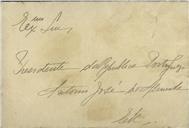 Ex.mo Snr.
Presidente da Republica Portugueza
Antonio José d'Almeida